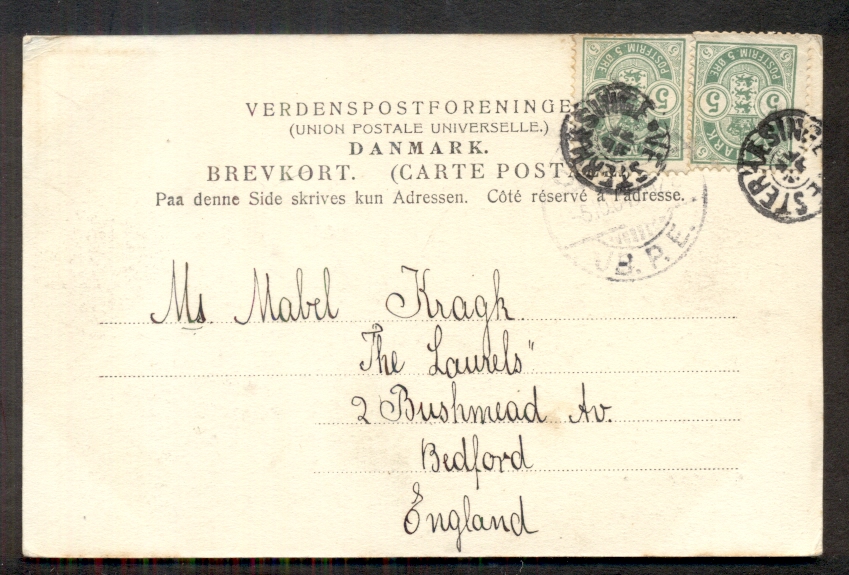 POSTFRIM. 5 ØRE
5 5
POSTFRIM. 5 ØRE
5 5
VESTER-ÆSINGE
VESTER-ÆSINGE
VERDENSPOSTFORENINGE
(UNION POSTALE UNIVERSELLE.)
DANMARK.
BREVKORT. (CARTE POSTA
Paa denne Side skrives kun Adressen. Côté réservé à l'adresse.
JB. P. E.
Ms. Mabel Kragh
The Laurels"
2 Bushmead Av.
Bedford
England